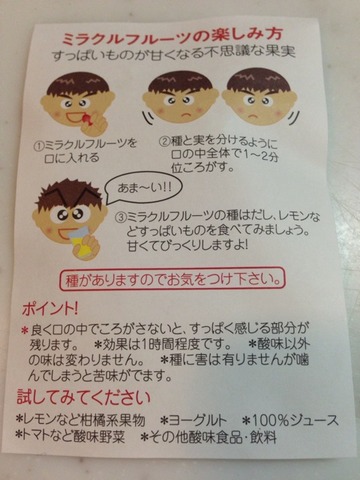 ミラクルフルーツの楽しみ方
すっぱいものが甘くなる不思議な果実
①ミラクルフルーツを
口に入れる
②種と実を分けるように
口の中全体で1〜2分
位ころがす。
あま〜い!!
③ミラクルフルーツの種はだし、レモンな
どすっぱいものを食べてみましょう。
甘くてびっくりしますよ!
種がありますのでお気をつけ下さい。
ポイント!
*良く口の中でころがさないと、すっぱく感じる部分が
残ります。 *効果は1時間程度です。 *酸味以外
の味は変わりません。 *種に害は有りませんが噛
んでしまうと苦味がでます。
試してみてください
*レモンなど柑橘系果物 *ヨーグルト *100%ジュース
*トマトなど酸味野菜 *その他酸味食品・飲料